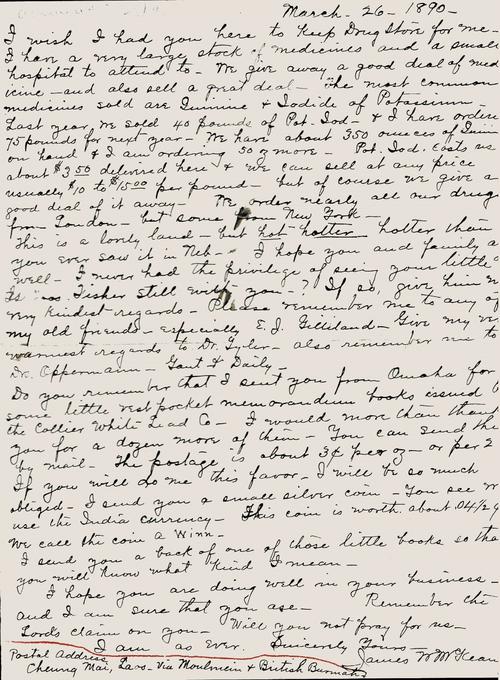 March - 26 - 1890 -
I wish I had you here to keep Drug Store for me -
I have a very large stock of medicines and a small
hospital to attend to - We give away a good deal of med
icine - and also sell a great deal - The most common
medicines sold are Quinine & Iodide of Potassium -
Last year we sold 40 pounds of Pot. Iod - & I have ordere
75 pounds for next year - We have about 350 ounces of Quin
on hand & I am ordering 50 more - Pot. Iod. costs us
about $3 50 delivered here & we can sell at any price
usually $10 to $15 00 per pound - but of course we give a
good deal of it away - We order nearly all our drug
from London - but some from New York -
This is a lovely land - but hot hotter hotter than
you ever saw it in Neb - I hope you and family a
well - I never had the privilege of seeing your little
Is Fisher still with you - ? If so, give him m
very kindest regards - Please remember me to any of
my old friends - especially E. J. Gilliland - Give my ve
warmest regards to Dr. Tyler - also remember me to
Dr. Oppermann - Gant & Daily -
Do you remember that I sent you from Omaha for
some little vest pocket memorandum books issued b
the Collier White Lead Co - I would more than thank
you for a dozen more of them - You can send the
by mail - The postage is about 3¢ per oz - or per 2
If you will do me this favor - I will be so much
obliged - I send you a small silver coin - You see w
use the India currency - This coin is worth about
We call the coin a Winn -
I send you a back of one of those little books so tha
you will know what kind I mean -
I hope you are doing well in your business -
and I am sure that you are - Remember the
Lords claim on you - Will you not pray for us -
I am as ever. Sincerely Yours -
James W McKean
Postal Address
Cheung Mai, Laos - via Moulmein & British Burmah